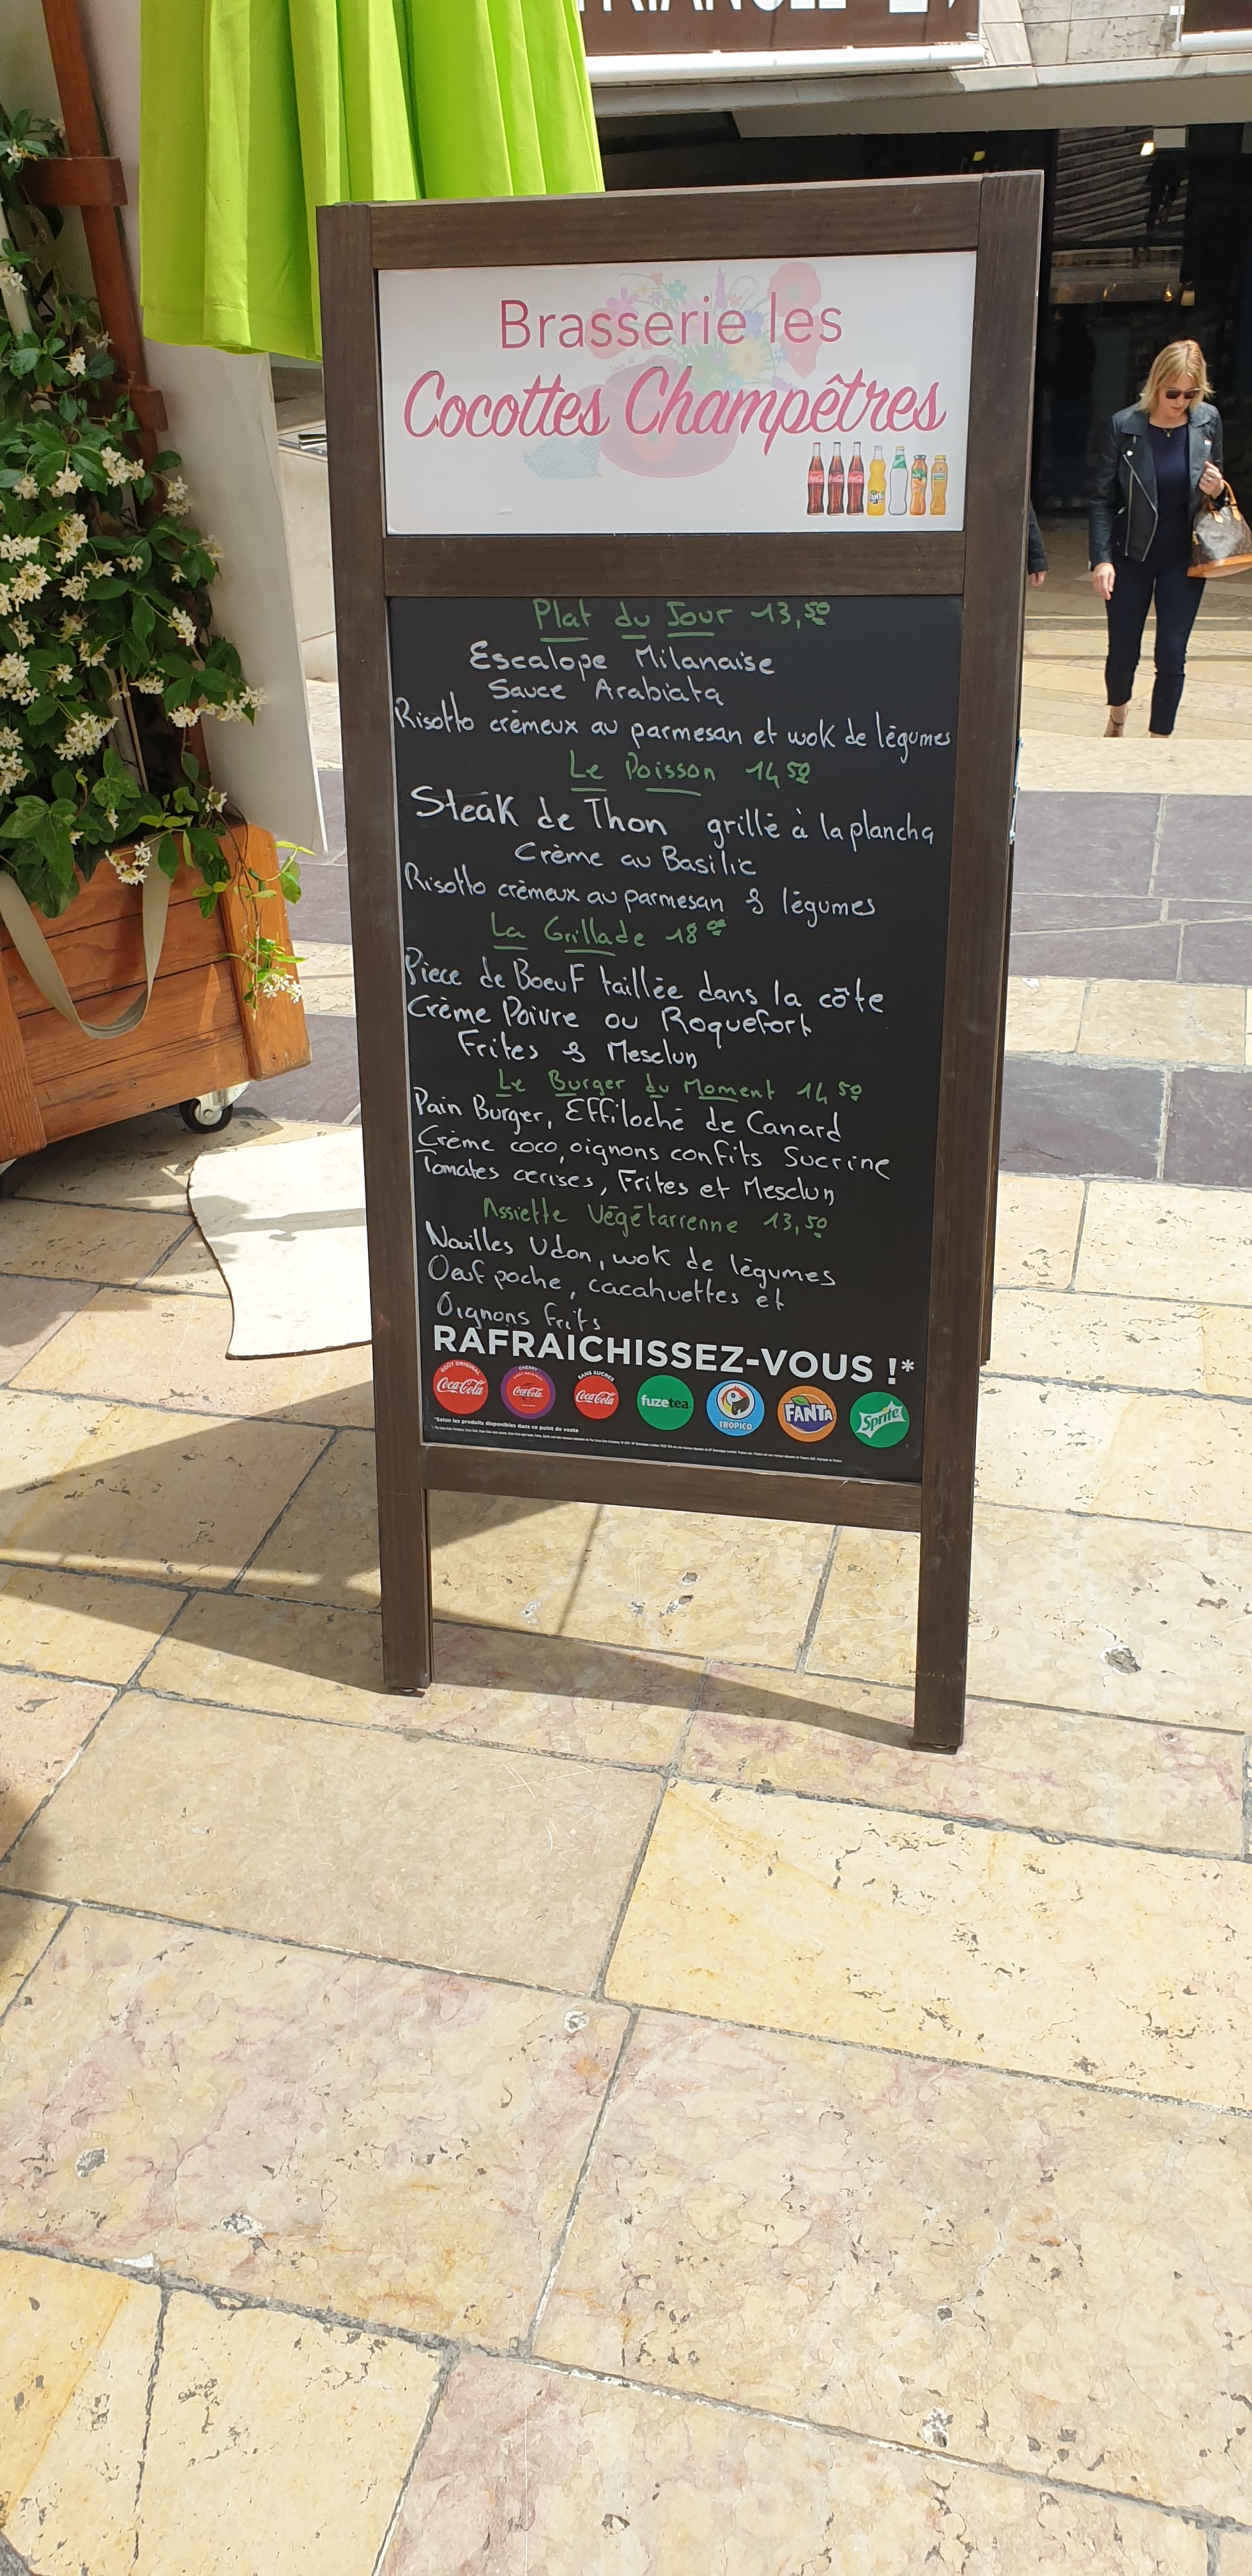 TRIANGLE
Brasserie les
Cocottes Champêtres
Plat du Jour 13,50
Escalope Milanaise
Sauce Arabiata
Risotto crèmeux au parmesan et wok de légumes
Le Poisson 14,50
Steak de Thon grillé à la plancha
Crème au Basilic
Risotto crèmeux au parmesan & légumes
La Grillade 18,00
Piece de Boeuf taillée dans la côte
Crème Poivre ou Roquefort
Frites & Mesclun
Le Burger du Moment 14,50
Pain Burger, Effiloché de Canard
Crème coco, oignons confits Sucrine
Tomates cerises, Frites et Mesclun
Assiette Végétarienne 13,50
Nouilles Udon, wok de légumes
Oeuf poche, cacahuettes et
Oignons frits
RAFRAICHISSEZ-VOUS !*
GOÛT ORIGINAL Coca-Cola CHERRY Coca-Cola SANS SUCRES Coca-Cola fuzetea TROPICO FANTA Sprite
*Selon les produits disponibles dans ce point de vente